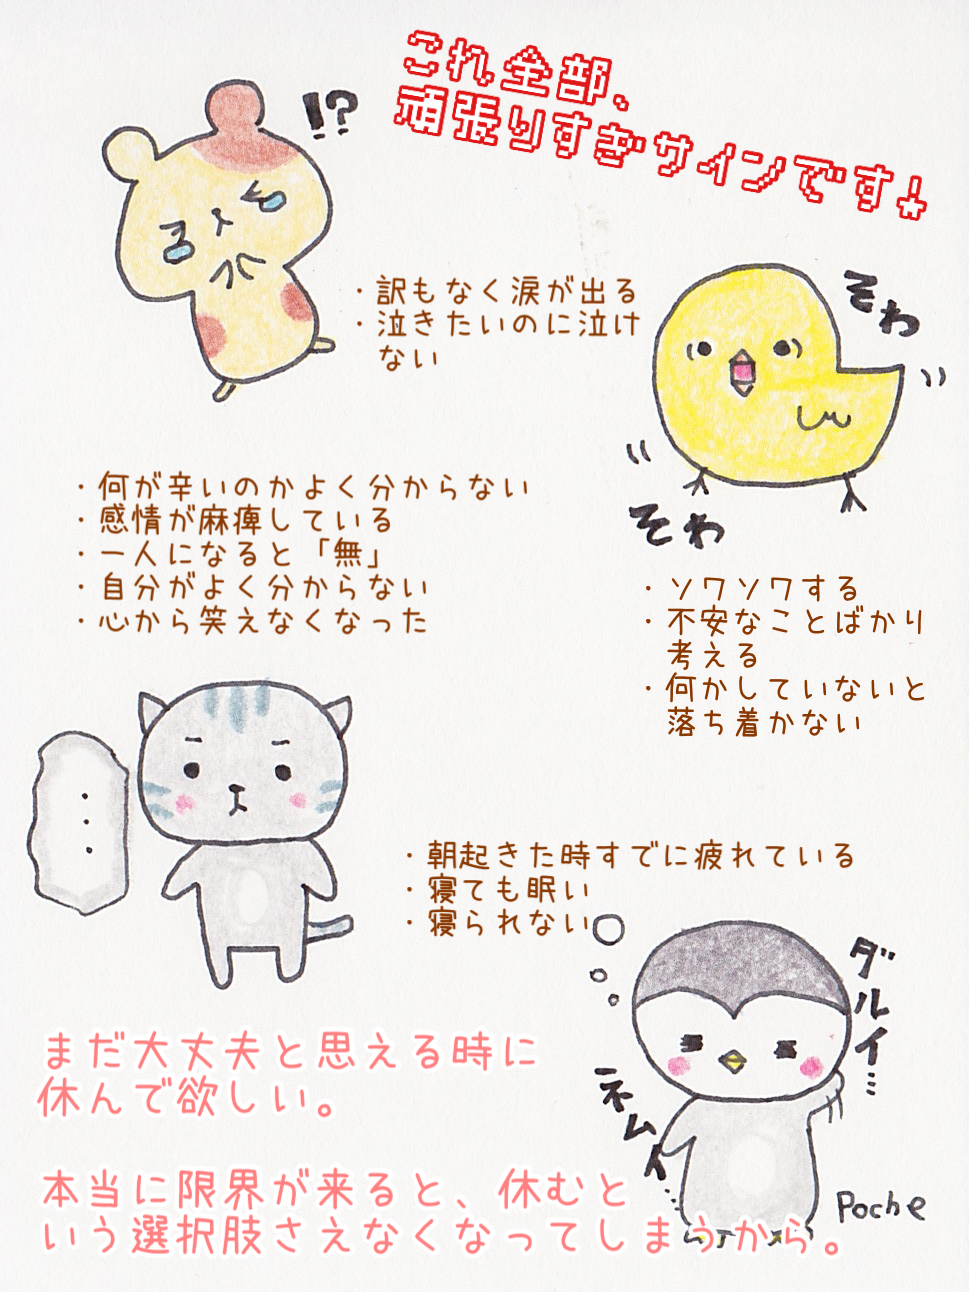 これ全部、
頑張りすぎサインです!
!?
・訳もなく涙が出る
・泣きたいのに泣け
ない
そわ
そわ
・何が辛いのかよく分からない
・感情が麻痺している
・一人になると「無」
・自分がよく分からない
・心から笑えなくなった
・ソワソワする
・不安なことばかり
考える
・何かしていないと
落ち着かない
・・・
・朝起きた時すでに疲れている
・寝ても眠い
・寝られない
ダルイ…
ネムイ…
まだ大丈夫と思える時に
休んで欲しい。
本当に限界が来ると、休むと
いう選択肢さえなくなってしまうから。
Poche